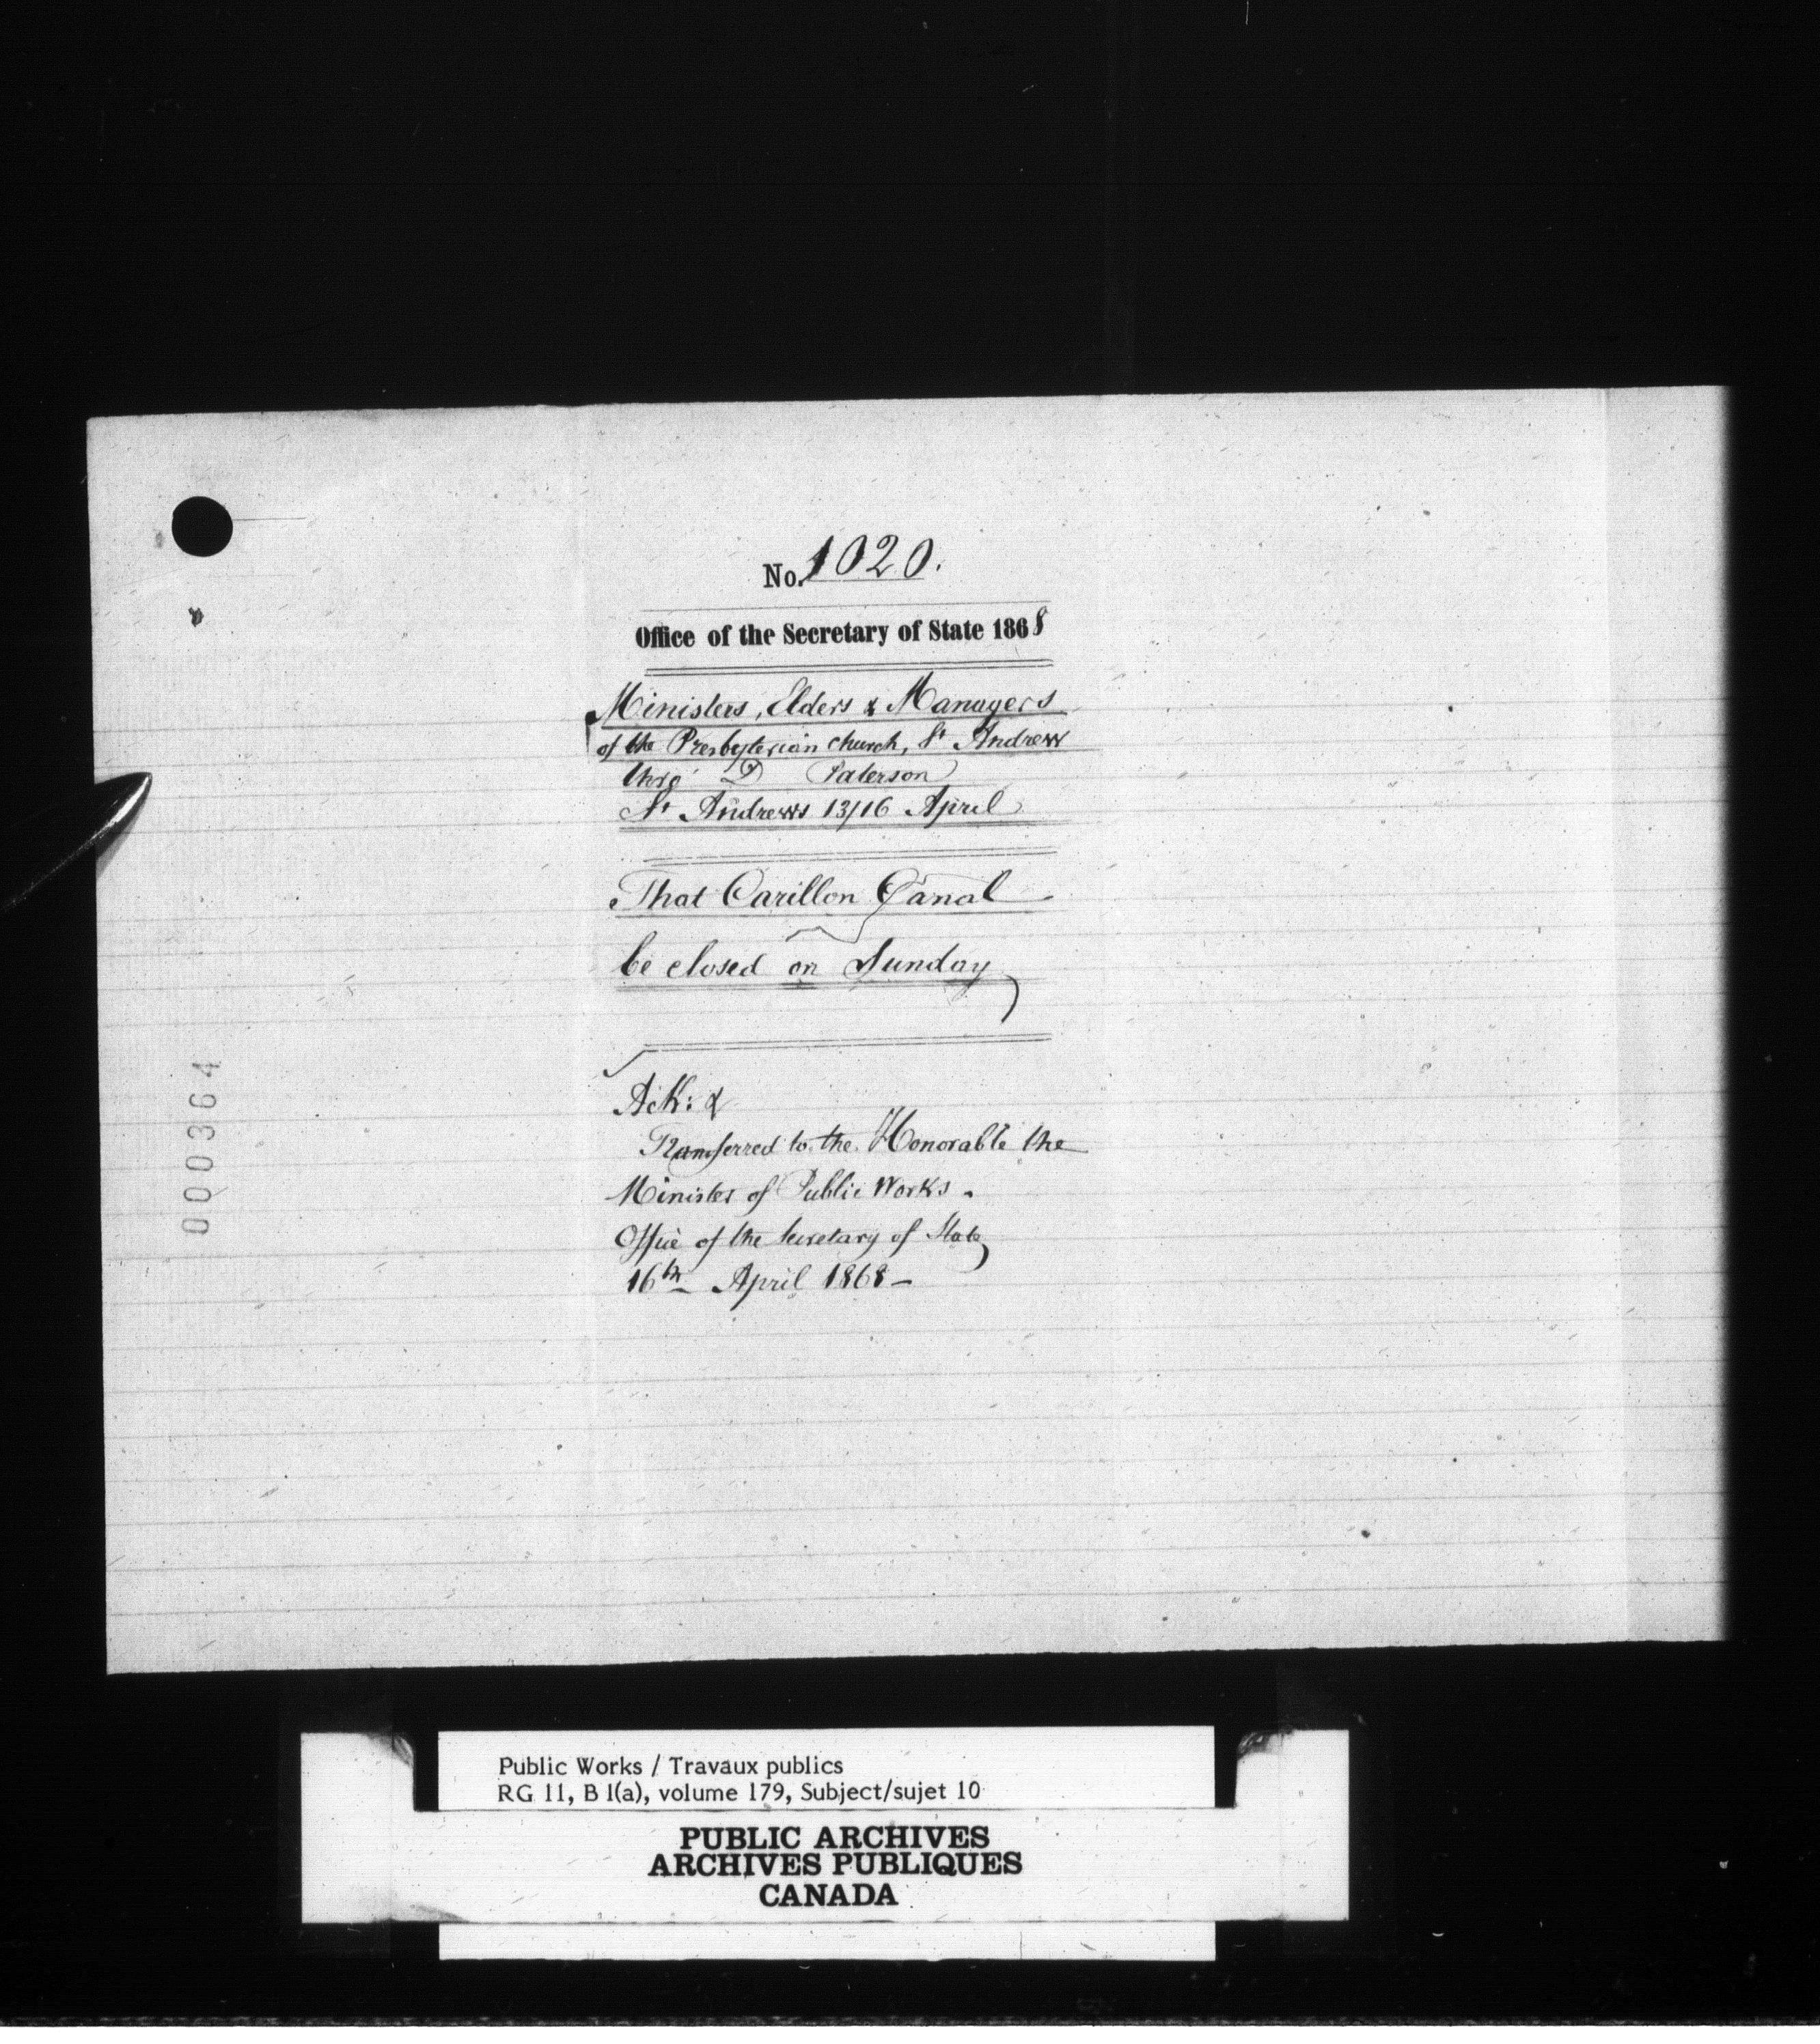 No. 1020.
Office of the Secretary of State 1868
Ministers, Elders & Managers
of the Presbyterian church, St Andrew
thro' D Paterson
St Andrews 13/16 April
That Carillon Canal
be closed on Sunday
Ack: &
Transferred to the Honorable the
Minister of Public Works.
Office of the Secretary of State
16th April 1868 –
000364
Public Works / Travaux publics
RG 11, B 1(a), volume 179, Subject/sujet 10
PUBLIC ARCHIVES
ARCHIVES PUBLIQUES
CANADA